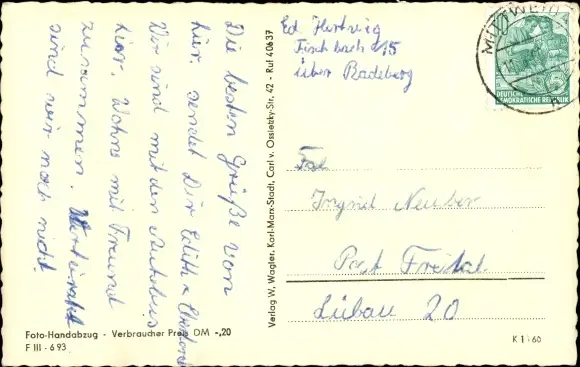 Die besten Grüße von
hier sendet Dir Edith u.
Wir sind mit den Autobus
hier. Wohne mit Freund
zusammen. Verheiratet
sind wir noch nicht.
Ed. Hertwig
Fischbach 15
über Radeberg
MITTWEIDA
DEUTSCHE
DEMOKRATISCHE REPUBLIK
5
Verlag W. Wagler, Karl-Marx-Stadt, Carl v. Ossietzky-Str. 42 - Ruf 40637
Frl.
Ingrid Neuber
Post Freital
Lübau 20
Foto-Handabzug - Verbraucher Preis DM -,20
F III - 6 93
K 1/60